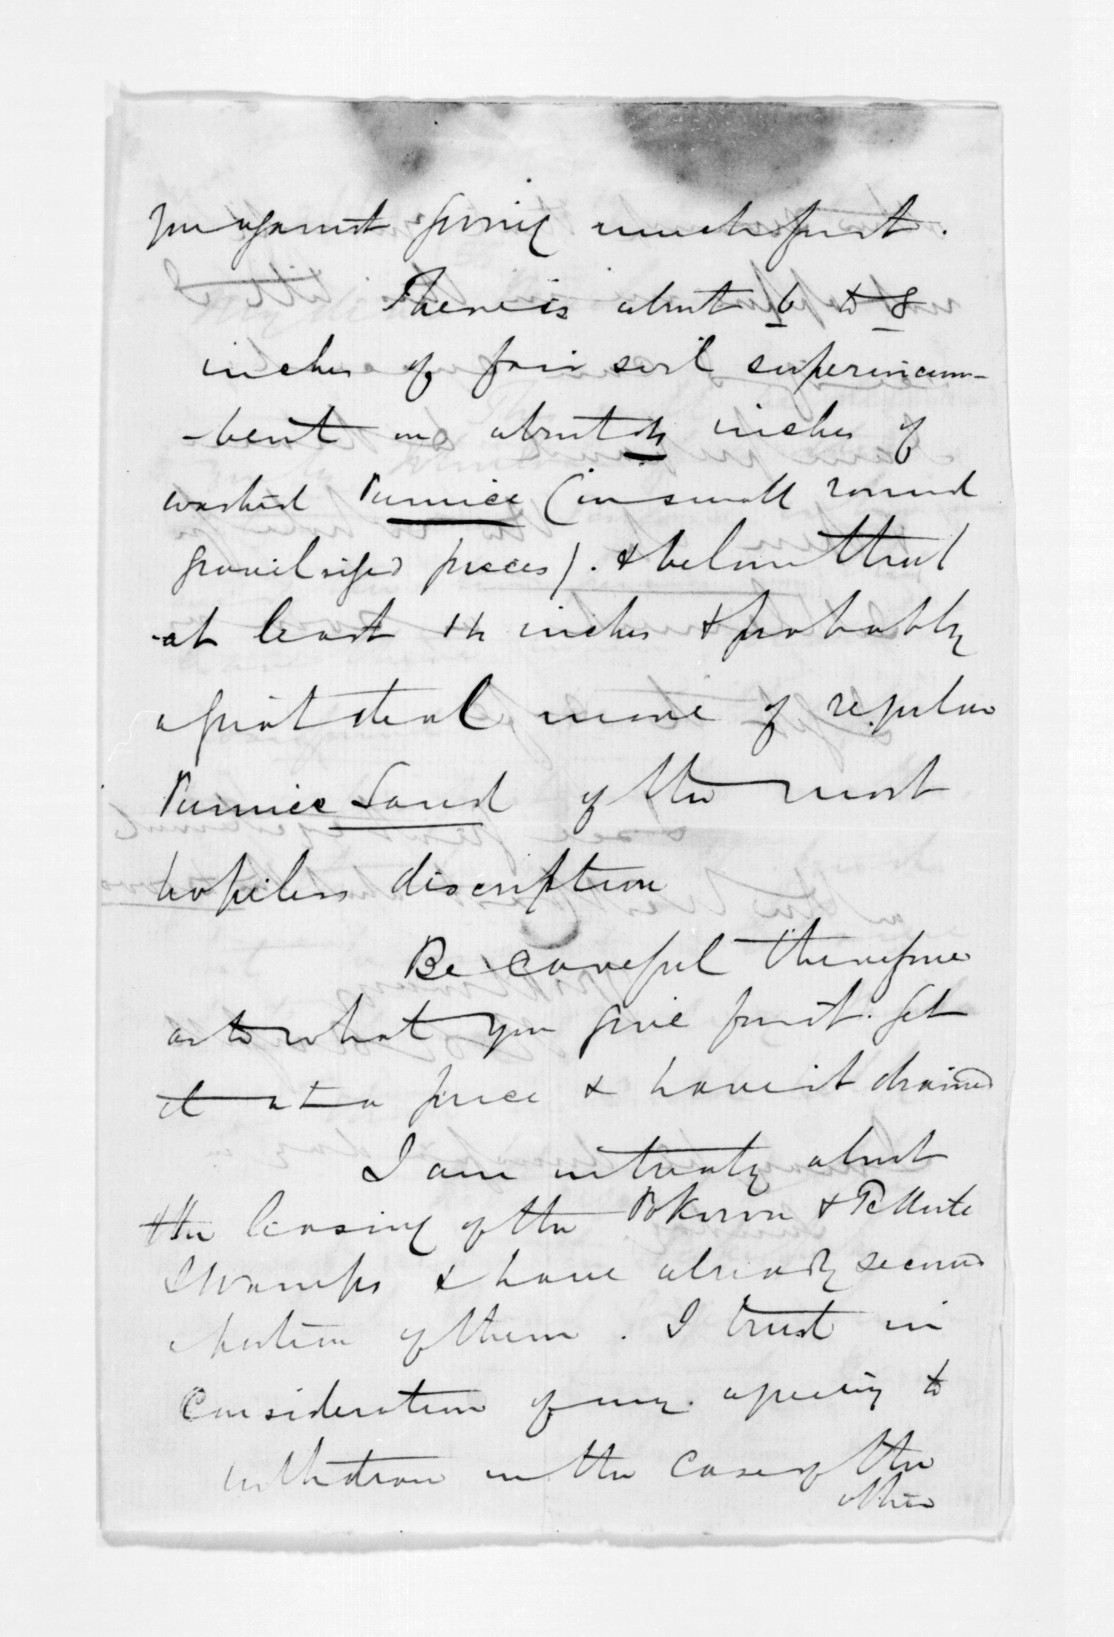 you against giving much for it.
There is about 6 to 8
inches of fair soil superincum-
-bent on about inches of
washed Pumice (in small round
gravil sized pieces). & below that
at least 14 inches & probably
a great deal more of regular
Pumice Sand of the most
hopeless discription
Be careful therefore
as to what you give for it. Get
it at a price & have it drained
I am in treaty about
the leasing of the &
Swamps & have already secured
a portion of them. I trust in
Consideration of my agreeing to
withdraw in the case of the
other